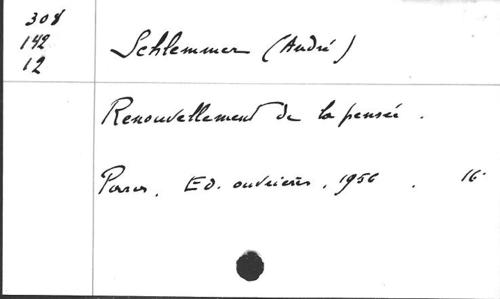 308
142
12
Schlemmer (André)
Renouvellement de la pensée.
Paris. Ed. ouvrières. 1956. 16